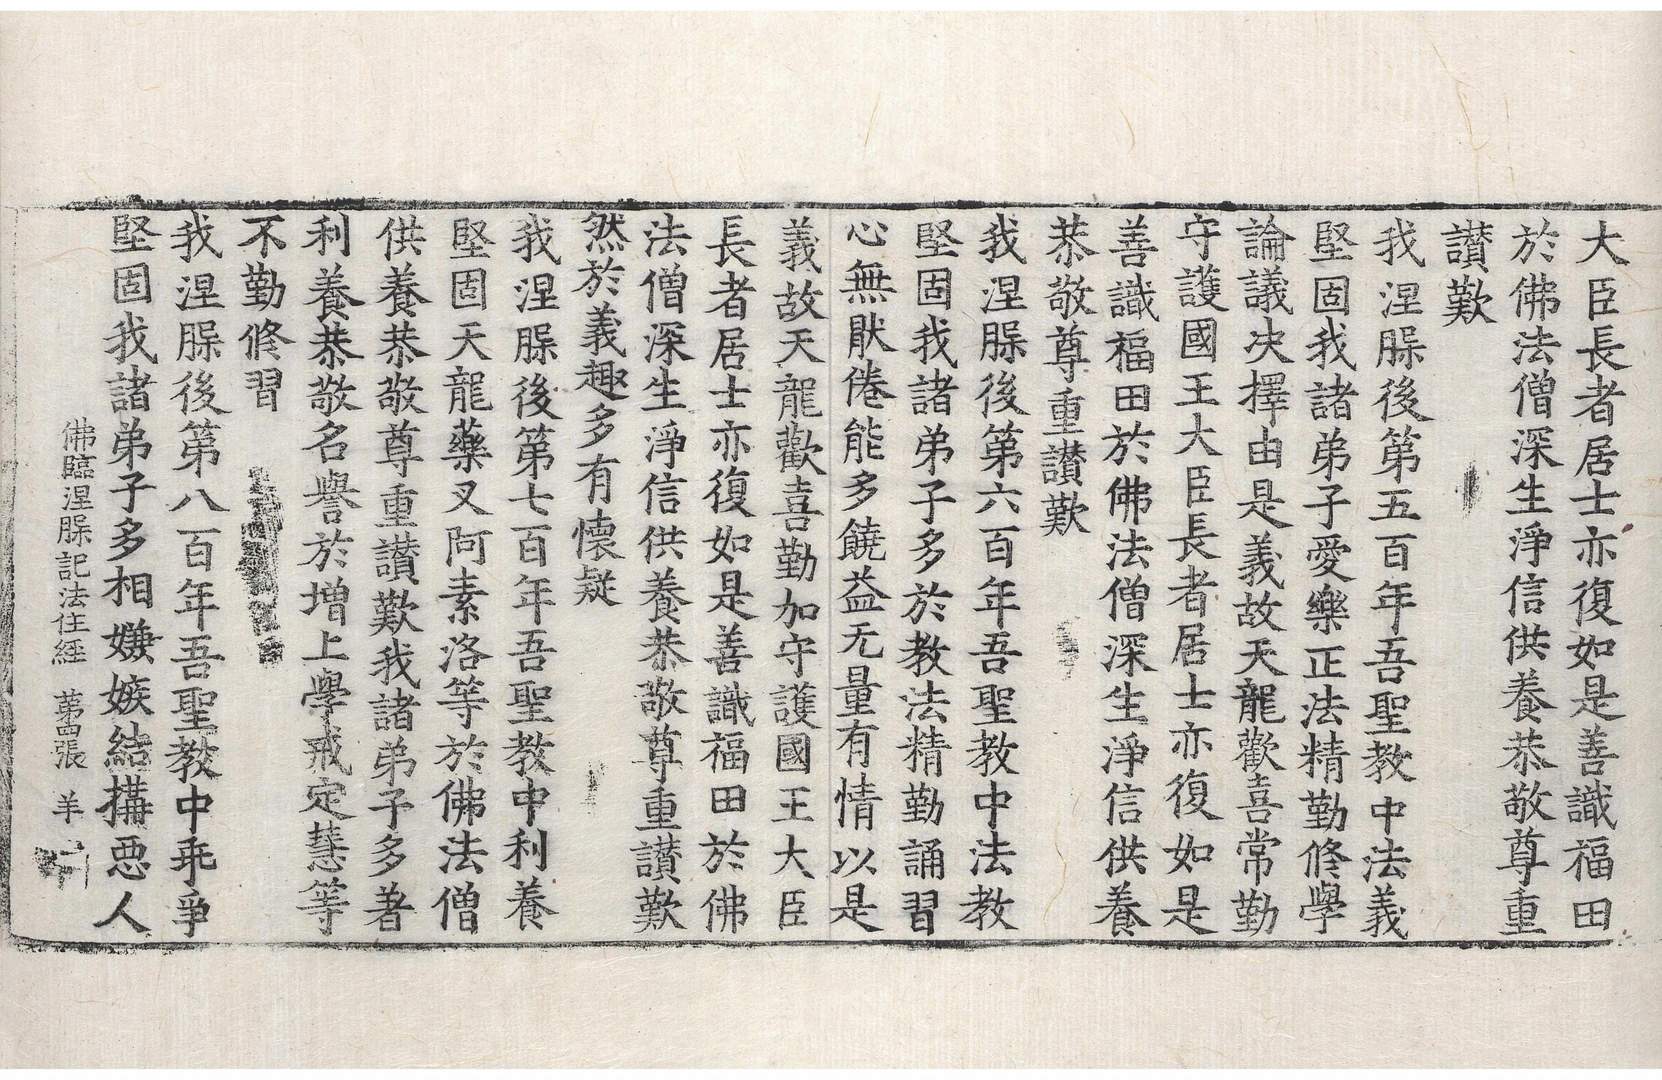 大臣長者居士亦復如是善識福田
於佛法僧深生淨信供養恭敬尊重
讃歎
我涅槃後第五百年吾聖教中法義
堅固我諸弟子愛樂正法精勤修學
論議决擇由是義故天龍歡喜常勤
守護國王大臣長者居士亦復如是
善識福田於佛法僧深生淨信供養
恭敬尊重讃歎
我涅槃後第六百年吾聖教中法教
堅固我諸弟子多於教法精勤誦習
心無猒倦能多饒益无量有情以是
義故天龍歡喜勤加守護國王大臣
長者居士亦復如是善識福田於佛
法僧深生淨信供養恭敬尊重讃歎
然於義趣多有懷疑
我涅槃後第七百年吾聖教中利養
堅固天龍藥叉阿素洛等於佛法僧
供養恭敬尊重讃歎我諸弟子多著
利養恭敬名譽於增上學戒定慧等
不勤修習
我涅槃後第八百年吾聖教中乖爭
堅固我諸弟子多相嫌嫉結搆惡人
佛臨涅槃記法住経 苐四張 羊